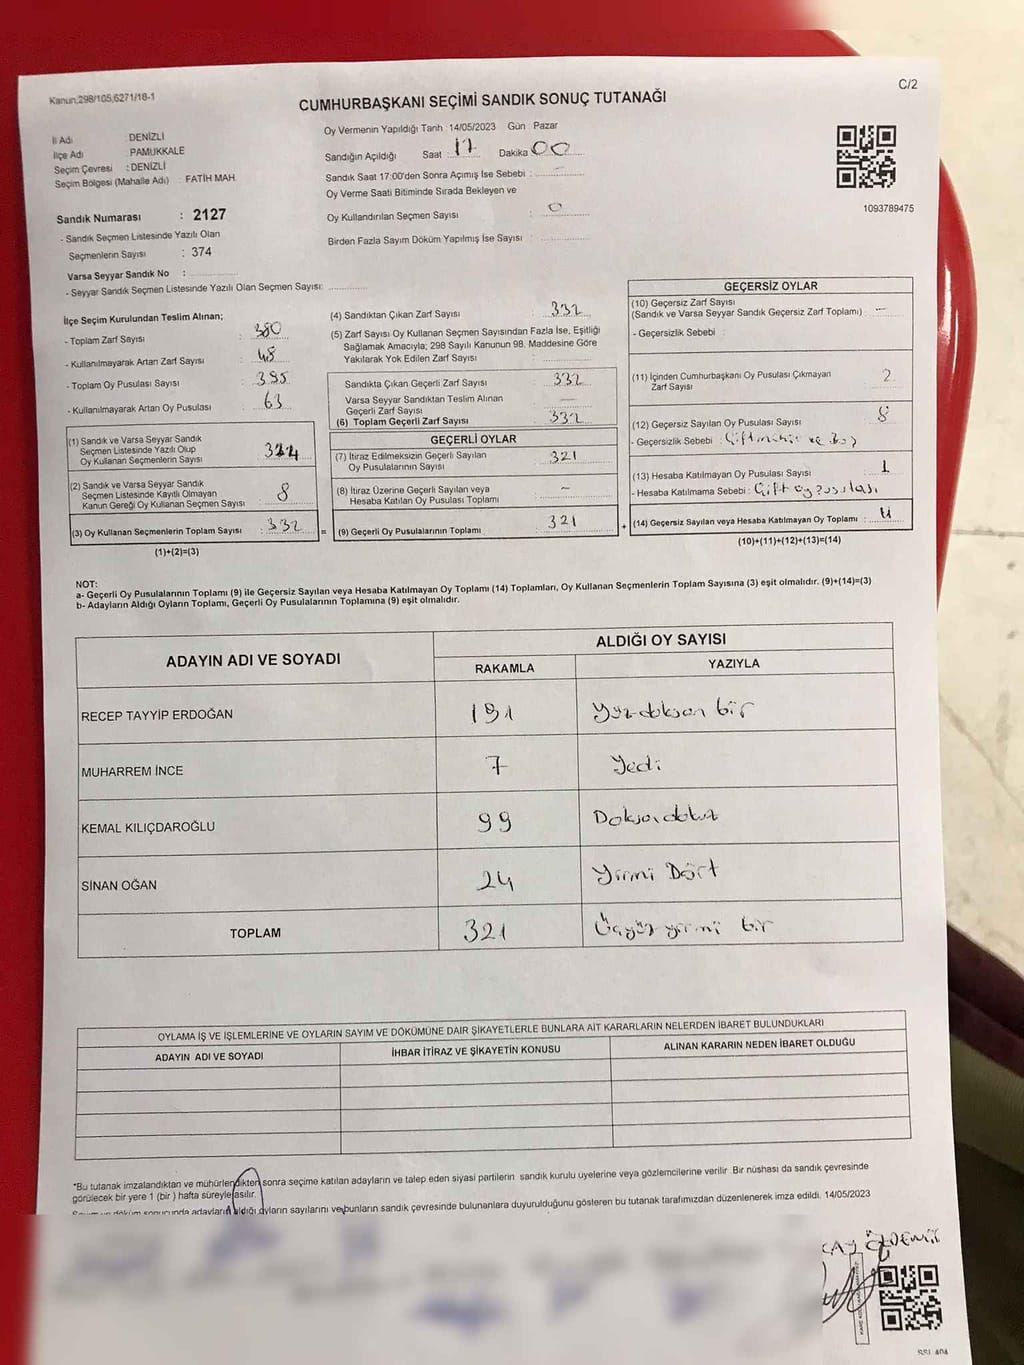 Kanun;298/105;6271/18-1
C/2
CUMHURBAŞKANI SEÇİMİ SANDIK SONUÇ TUTANAĞI
İl Adı DENİZLİ
İlçe Adı PAMUKKALE
Seçim Çevresi : DENİZLİ
Seçim Bölgesi (Mahalle Adı) : FATİH MAH.
Sandık Numarası : 2127
- Sandık Seçmen Listesinde Yazılı Olan
Seçmenlerin Sayısı : 374
Varsa Seyyar Sandık No :
- Seyyar Sandık Seçmen Listesinde Yazılı Olan Seçmen Sayısı:
Oy Vermenin Yapıldığı Tarih :14/05/2023 Gün : Pazar
Sandığın Açıldığı Saat 17 Dakika 00
Sandık Saat 17:00'den Sonra Açımış İse Sebebi : -
Oy Verme Saati Bitiminde Sırada Bekleyen ve
Oy Kullandırılan Seçmen Sayısı : 0
Birden Fazla Sayım Döküm Yapılmış İse Sayısı :
1093789475
İlçe Seçim Kurulundan Teslim Alınan;
- Toplam Zarf Sayısı : 380
- Kullanılmayarak Artan Zarf Sayısı : 48
- Toplam Oy Pusulası Sayısı : 395
- Kullanılmayarak Artan Oy Pusulası : 63
(1) Sandık ve Varsa Seyyar Sandık
Seçmen Listesinde Yazılı Olup
Oy Kullanan Seçmenlerin Sayısı : 324
(2) Sandık ve Varsa Seyyar Sandık
Seçmen Listesinde Kayıtlı Olmayan
Kanun Gereği Oy Kullanan Seçmen Sayısı : 8
(3) Oy Kullanan Seçmenlerin Toplam Sayısı : 332 =
(1)+(2)=(3)
(4) Sandıktan Çıkan Zarf Sayısı : 332
(5) Zarf Sayısı Oy Kullanan Seçmen Sayısından Fazla İse, Eşitliği
Sağlamak Amacıyla; 298 Sayılı Kanunun 98. Maddesine Göre
Yakılarak Yok Edilen Zarf Sayısı :
Sandıkta Çıkan Geçerli Zarf Sayısı : 332
Varsa Seyyar Sandıktan Teslim Alınan
Geçerli Zarf Sayısı : —
(6) Toplam Geçerli Zarf Sayısı : 332
GEÇERLİ OYLAR
(7) İtiraz Edilmeksizin Geçerli Sayılan
Oy Pusulalarının Sayısı : 321
(8) İtiraz Üzerine Geçerli Sayılan veya
Hesaba Katılan Oy Pusulası Toplamı : -
(9) Geçerli Oy Pusulalarının Toplamı : 321 +
GEÇERSİZ OYLAR
(10) Geçersiz Zarf Sayısı
(Sandık ve Varsa Seyyar Sandık Geçersiz Zarf Toplamı) : —
- Geçersizlik Sebebi :
(11) İçinden Cumhurbaşkanı Oy Pusulası Çıkmayan
Zarf Sayısı : 2
(12) Geçersiz Sayılan Oy Pusulası Sayısı : 8
- Geçersizlik Sebebi : Çift mühür ve Boş
(13) Hesaba Katılmayan Oy Pusulası Sayısı : 1
- Hesaba Katılmama Sebebi : Çift oy pusulası
(14) Geçersiz Sayılan veya Hesaba Katılmayan Oy Toplamı : 11
(10)+(11)+(12)+(13)=(14)
NOT:
a- Geçerli Oy Pusulalarının Toplamı (9) ile Geçersiz Sayılan veya Hesaba Katılmayan Oy Toplamı (14) Toplamları, Oy Kullanan Seçmenlerin Toplam Sayısına (3) eşit olmalıdır. (9)+(14)=(3)
b- Adayların Aldığı Oyların Toplamı, Geçerli Oy Pusulalarının Toplamına (9) eşit olmalıdır.
ADAYIN ADI VE SOYADI
ALDIĞI OY SAYISI
RAKAMLA YAZIYLA
RECEP TAYYİP ERDOĞAN 191 Yüzdoksan bir
MUHARREM İNCE 7 Yedi
KEMAL KILIÇDAROĞLU 99 Doksandokuz
SİNAN OĞAN 24 Yirmi Dört
TOPLAM 321 Üçyüz yirmi bir
OYLAMA İŞ VE İŞLEMLERİNE VE OYLARIN SAYIM VE DÖKÜMÜNE DAİR ŞİKAYETLERLE BUNLARA AİT KARARLARIN NELERDEN İBARET BULUNDUKLARI
ADAYIN ADI VE SOYADI İHBAR İTİRAZ VE ŞİKAYETİN KONUSU ALINAN KARARIN NEDEN İBARET OLDUĞU
*Bu tutanak imzalandıktan ve mühürlendikten sonra seçime katılan adayların ve talep eden siyasi partilerin sandık kurulu üyelerine veya gözlemcilerine verilir. Bir nüshası da sandık çevresinde
görülecek bir yere 1 (bir ) hafta süreyle asılır.
Sayım ve döküm sonucunda adayların aldığı oyların sayılarını ve bunların sandık çevresinde bulunanlara duyurulduğunu gösteren bu tutanak tarafımızdan düzenlenerek imza edildi. 14/05/2023
ÖZDEMİR